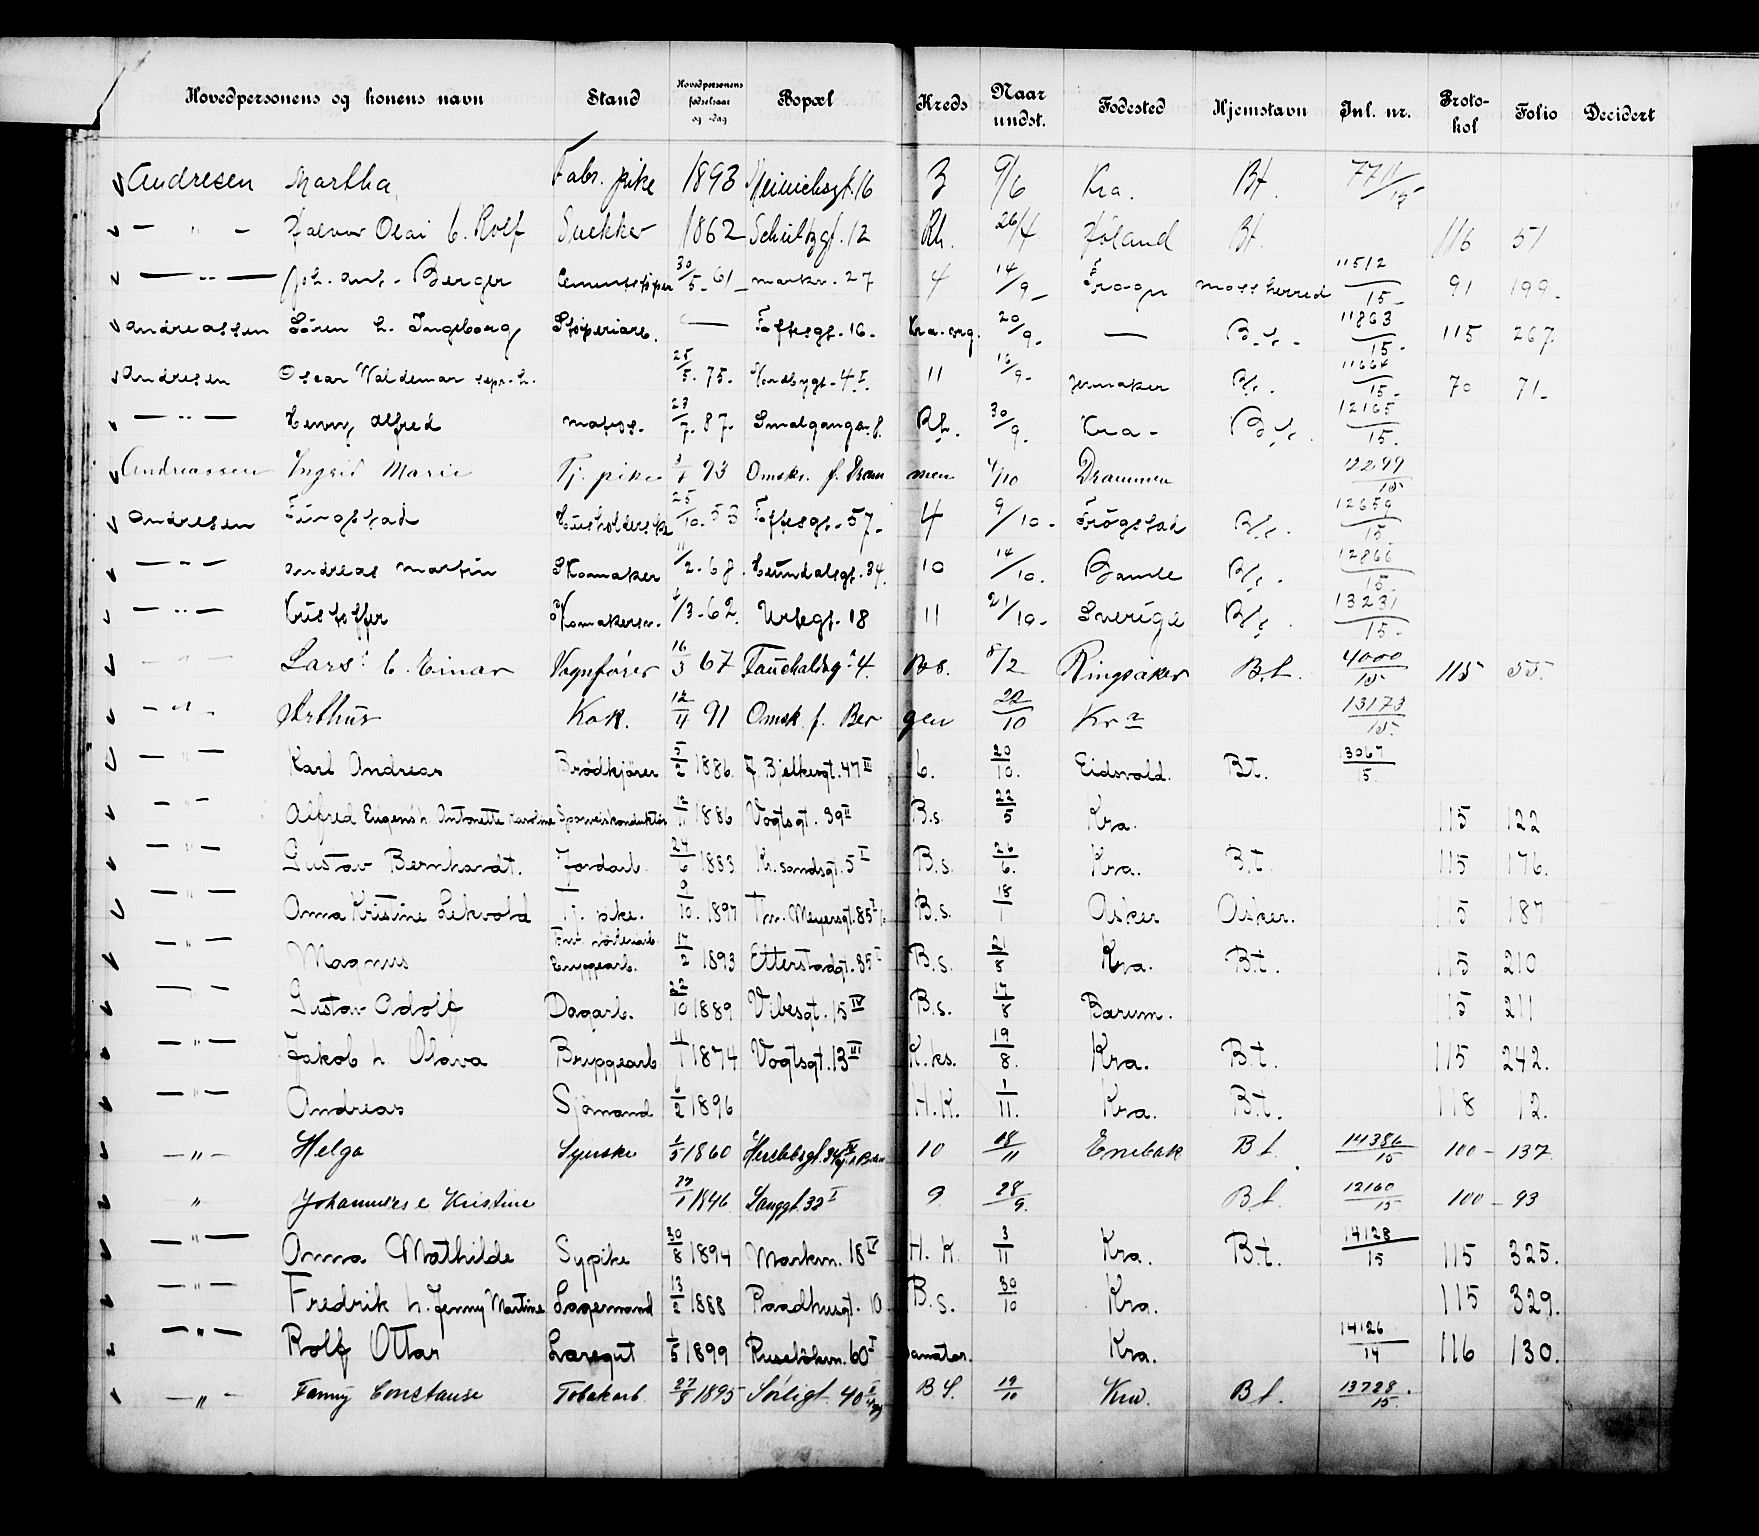 Hovedpersonens og konens navn Stand Hovedpersonens fødselsaar og -dag Bopæl Kreds Naar undst. Fødested Hjemstavn Jnl. nr. Protokol Folio Decidert
Andresen Martha Fabr. pike 1893 16 3 9/6 Kra. Bt. 771/15
— " — Olai C. Rolf Snekker 1862 12 Rh. 26/4 Høland Bt. 116 51
— " — Joh. Ant. Berger 30/5 - 61 - markv. 27 4 14/9 - Frogn Mossherred 11512/15 - 91 199 -
Andreassen Søren h. Ingeborg — Toftesgt. 16 - 20/9 - — B.t. - 11863/15 - 115 267.
Andresen Oscar Waldemar sep. h. 25/5. 75. 4 I. 11 B.t. 15 - 70 71 -
— " — Henry Alfred Matros. 23/7. 87. Smalgangen 8. Rh. 30/9. Kra - B.t. 12165/15.
Andreassen Ingrid Marie Tj. pike 93 Omsks. f. Drammen 4/10 Drammen 12299/15
Andresen Fingstad Husholderske 25/10. 53 Toftesgt. 57 - 4 9/10 - Trøgstad B.t. 12659/15
— " — Andreas Martin Skomaker 11/2. 68. 34. 10 14/10. Bamle B.t. 12866/15
— " — Kristoffer Skomakersv. 4/3 - 62. Urtegt. 18 11 21/10 - Sverige B.t. 13231/15 -
— " — Lars C. Einar Vognfører 16/3 67 Fauchaldsg. 4. B.s. 8/2 Ringsaker B.t. 4000/15 115 55.
— " — Arthur Kok. 12/11 91 Omsk. f. Bergen 22/10 Kra 13173/15
— " — Karl Andreas Brødkjører 5/2 1886. J. Bjelkesgt. 47 III 6. 20/10. Eidsvold. Bt. 13067/15.
— " — Alfred Eugen h. Antonette Karoline Sporveiskonduktør 12/11 1886 Vogtsgt. 39 II B.s. 22/5 Kra. 115 122
— " — Gustav Bernhardt. Jordarb. 24/6 1883 Kr.sandsgt. 5 I B.s. 26/6. Kra. B.t. 115 176.
— " — Anna Kristine Lekvold Tj. pike. 9/10. 1897 Th. Meyersgt. 85 I B.s. Asker Asker. 115 187
— " — Magnus Bryggearb. 17/2 1893 Etterstadgt. 35 I B.s. 21/8 Kra. B.t. 115 210
— " — Gustav Adolf Dagarb. 22/10 1889 Vibesgt. 15 IV B.s. 17/8 Bærum. 115 211
— " — Jakob h Olava Bryggearb 11/1 1874 Vogtsgt. 13 III K.ks. 19/8. Kra. B.t. 115 242.
— " — Andreas Sjømand 6/2 1896 H.K. 1/11. Kra. B.t. 118 12.
— " — Helga Syerske 1/5 1860 10 18/11 Enebak B t. 14386/15 100 - 137.
" Johannes e Kristine 27/1 1846. Langgt. 32 I 9. 28/9. B.t. 12160/15 100 - 93
— " — Anna Mathilde Sypike 30/8 1894 Markvn. 18 IV H. K. 3/11 Kra. B.t. 14128/15 115 325.
— " — Fredrik h. Jenny Martine Lagermand 13/2 1888 Raadhusgt. 10 B.s. 30/10 Kra. 115 329.
— " — Rolf Ottar Læregut 1/5 1899 Ruseløkvn. 60 I Kra. 14126/14 116 130.
— " — Fanny Constanse Tobakarb 27/8 1895 Sørligt. 40 B S. 19/10 Kra. B t. 13728/15.